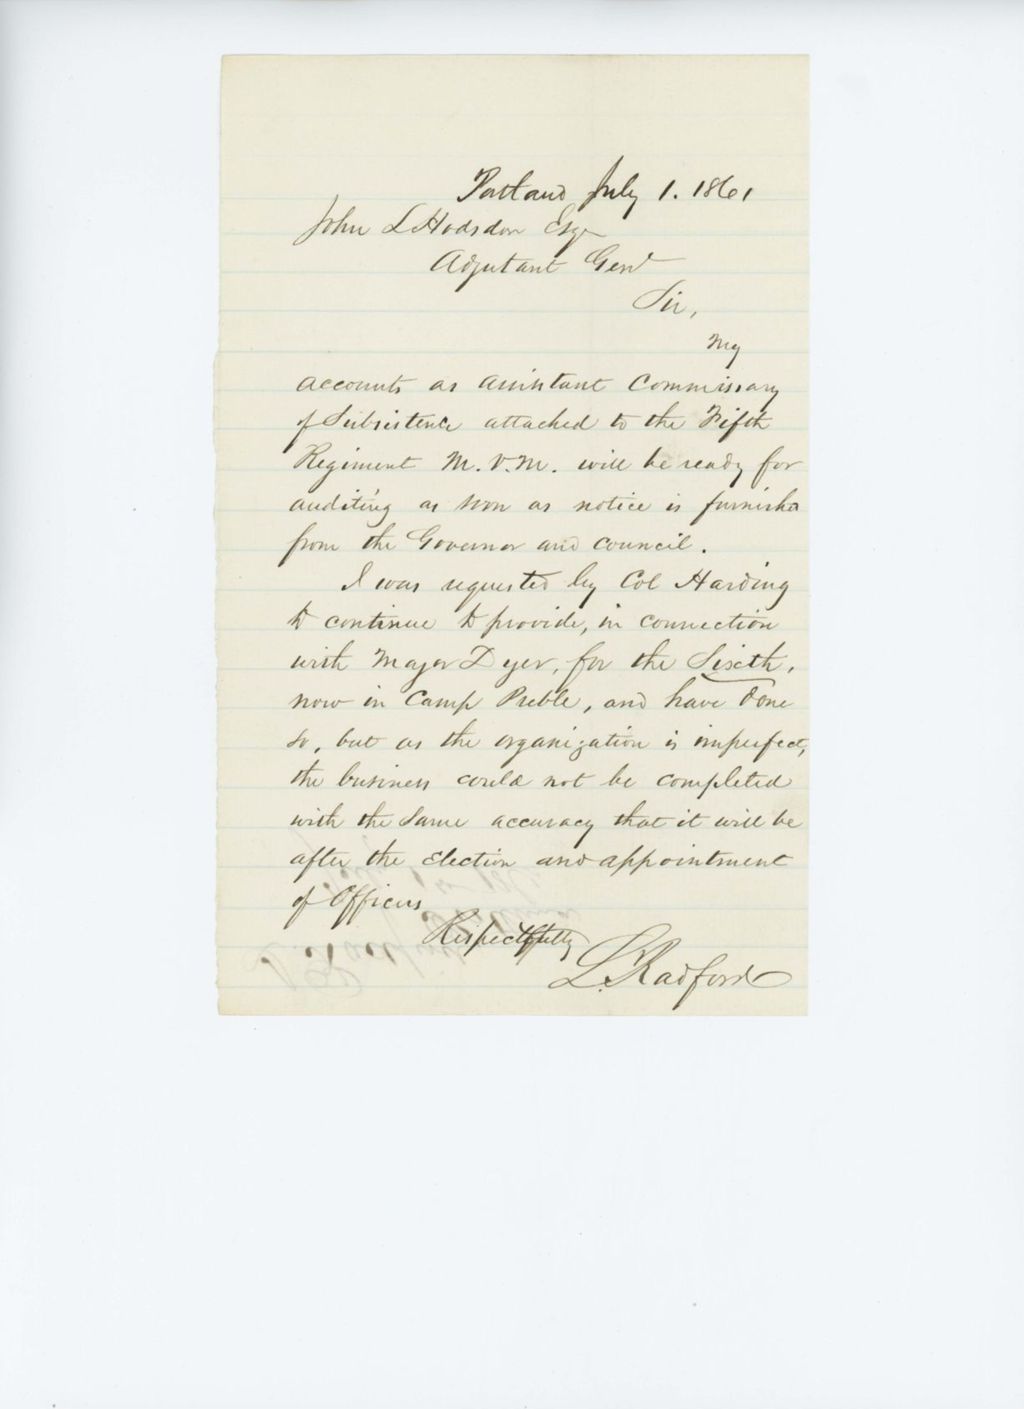 Portland July 1. 1861
John L Hodsdon Esqr
Adjutant Genl
Sir,
My
accounts as Assistant Commissary
of Subsistence attached to the Fifth
Regiment M. V. M. will be ready for
auditing as soon as notice is furnished
from the Governor and council.
I was requested by Col Harding
to continue to provide, in connection
with Major Dyer, for the Sixth,
now in Camp Preble, and have done
so, but as the organization is imperfect,
the business could not be completed
with the same accuracy that it will be
after the election and appointment
of Officers
Respectfully
L. Radford